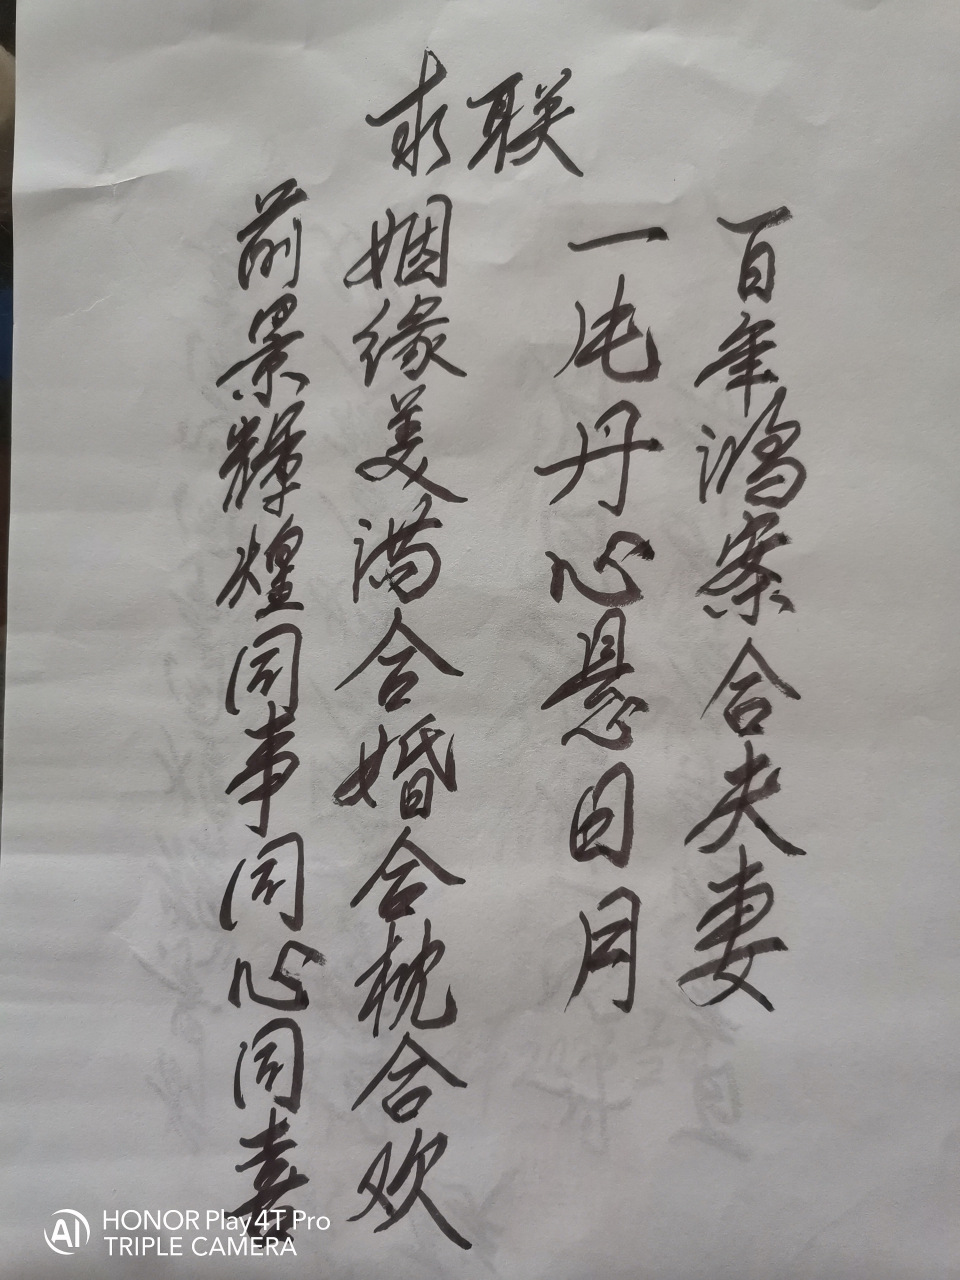 求联
百年鸿案合夫妻
一片丹心悬日月
姻缘美满合婚合枕合欢
前景辉煌同事同心同喜
AI
HONOR Play4T Pro
TRIPLE CAMERA